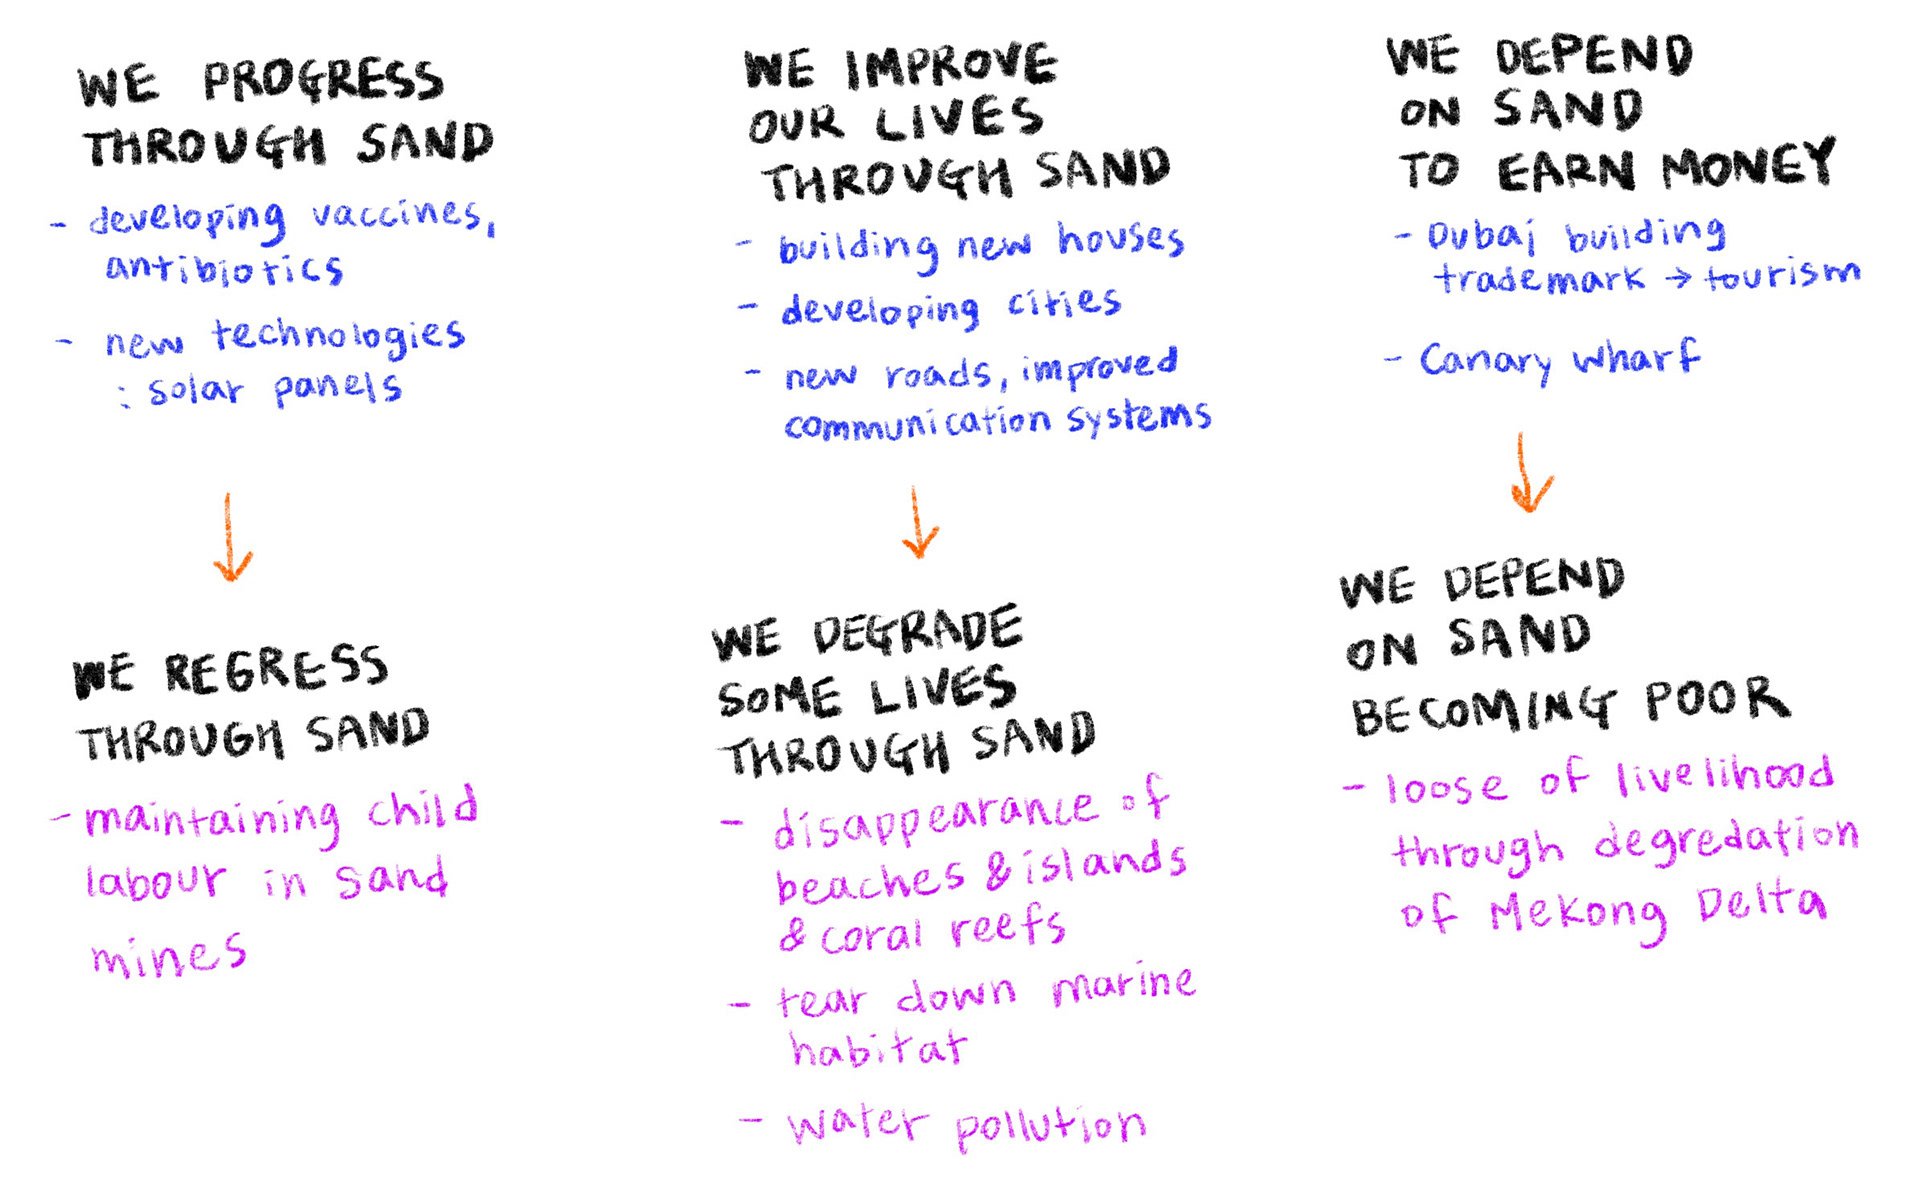 WE PROGRESS
THROUGH SAND
- developing vaccines,
antibiotics
- new technologies
: solar panels
WE REGRESS
THROUGH SAND
- maintaining child
labour in sand
mines
WE IMPROVE
OUR LIVES
THROUGH SAND
- building new houses
- developing cities
- new roads, improved
communication systems
WE DEGRADE
SOME LIVES
THROUGH SAND
- disappearance of
beaches & islands
& coral reefs
- tear down marine
habitat
- water pollution
WE DEPEND
ON SAND
TO EARN MONEY
- Dubai building
trademark → tourism
- Canary wharf
WE DEPEND
ON SAND
BECOMING POOR
- loose of livelihood
through degredation
of Mekong Delta